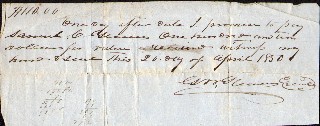 $110.00
One day after date I promise to pay
Samuel C. One hundred and ten
dollars for value received witness my
hand & seal this 20 day of April 1850